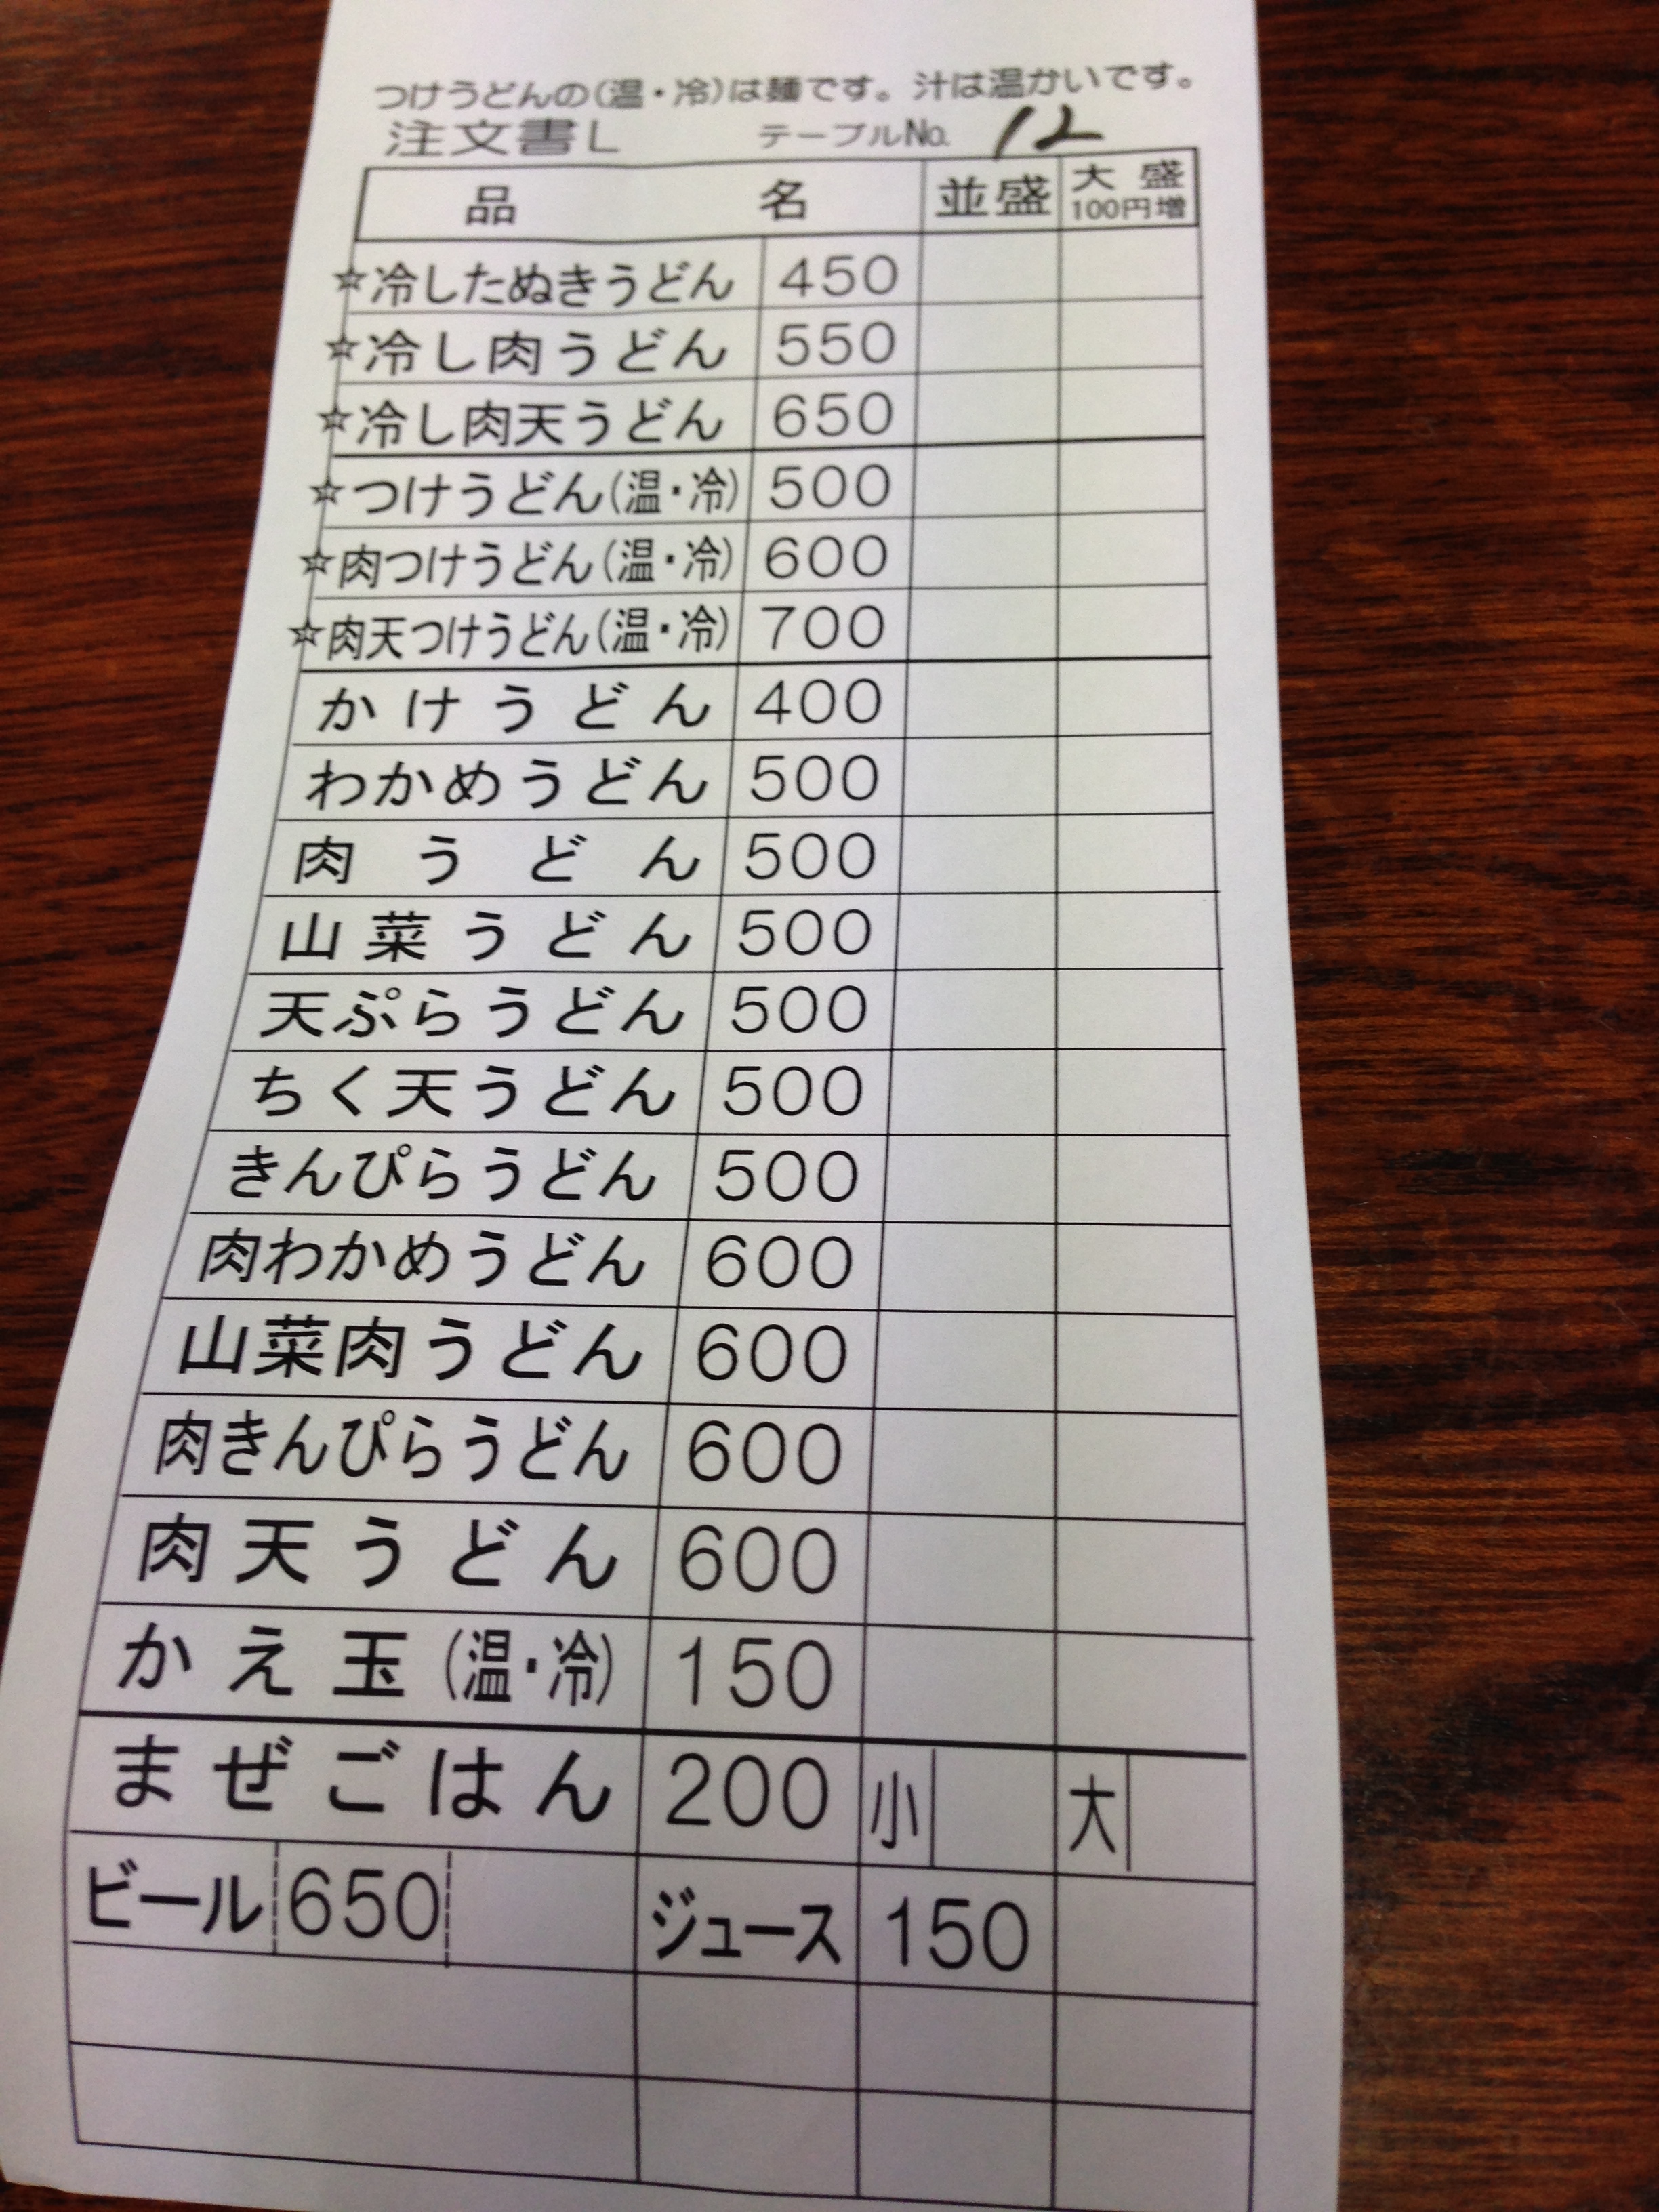 つけうどんの(温・冷)は麺です。汁は温かいです。
注文書L テーブルNo. 12
品名 並盛 大盛 100円増
☆冷したぬきうどん 450
☆冷し肉うどん 550
☆冷し肉天うどん 650
☆つけうどん(温・冷) 500
☆肉つけうどん(温・冷) 600
☆肉天つけうどん(温・冷) 700
かけうどん 400
わかめうどん 500
肉うどん 500
山菜うどん 500
天ぷらうどん 500
ちく天うどん 500
きんぴらうどん 500
肉わかめうどん 600
山菜肉うどん 600
肉きんぴらうどん 600
肉天うどん 600
かえ玉(温・冷) 150
まぜごはん 200 小 大
ビール 650 ジュース 150